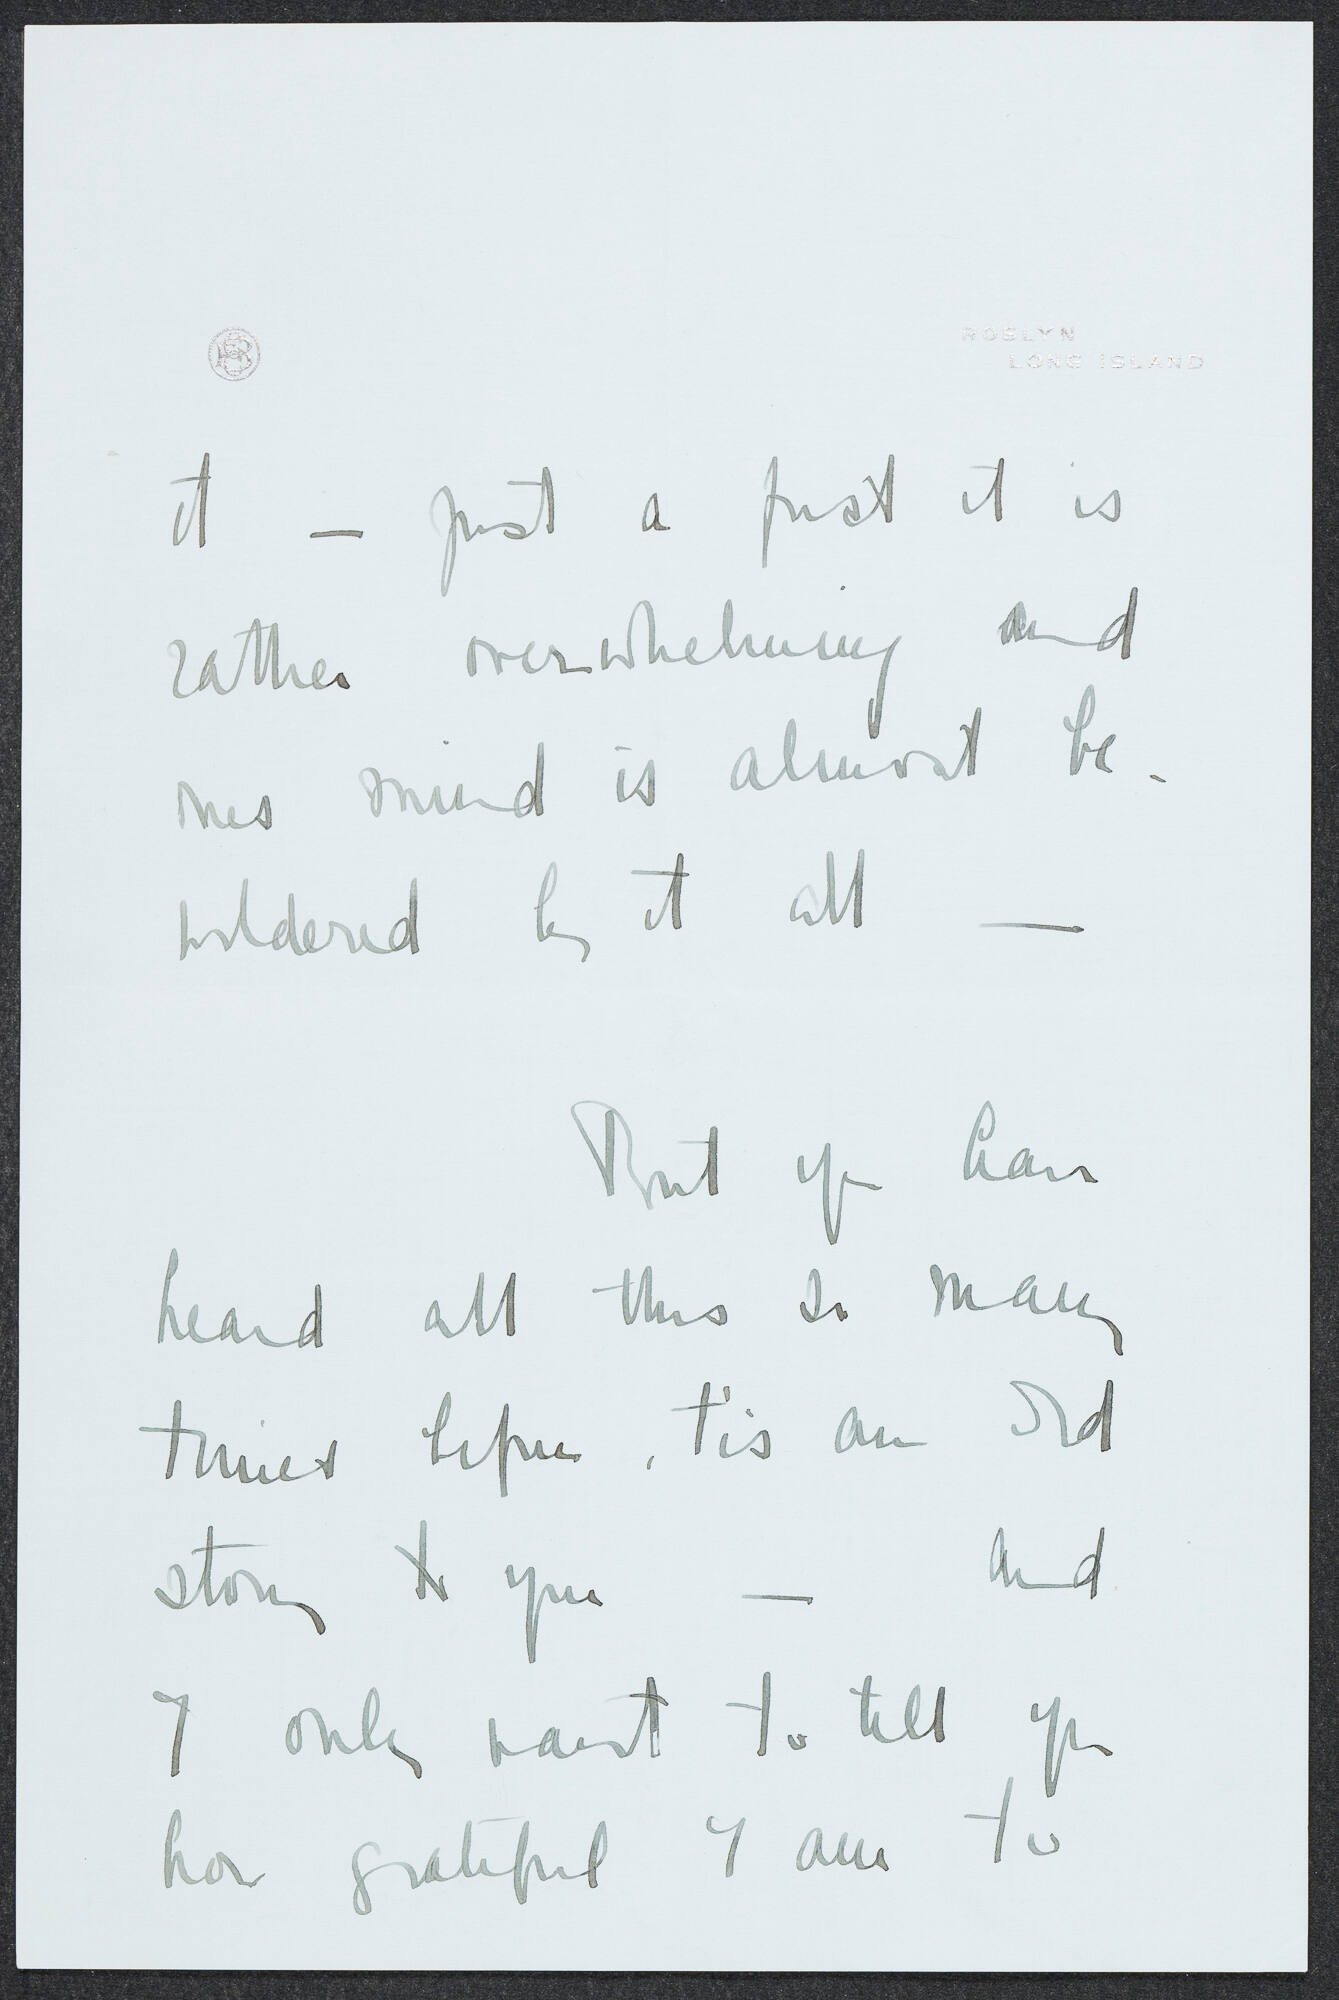 ROSLYN
LONG ISLAND
it — just a first it is
rather overwhelming and
ones mind is almost be-
wildered by it all —
But you have
heard all this so many
times before, t'is an old
story to you — and
I only want to tell you
how grateful I am to